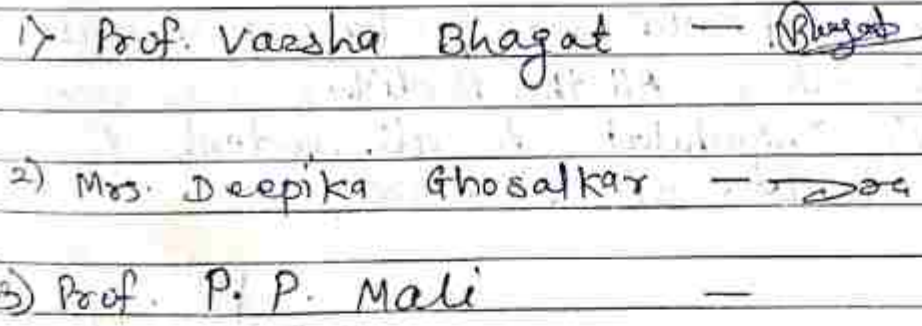 1) Prof. Varsha Bhagat — Bhagat
2) Mrs. Deepika Ghosalkar —
3) Prof. P. P. Mali —